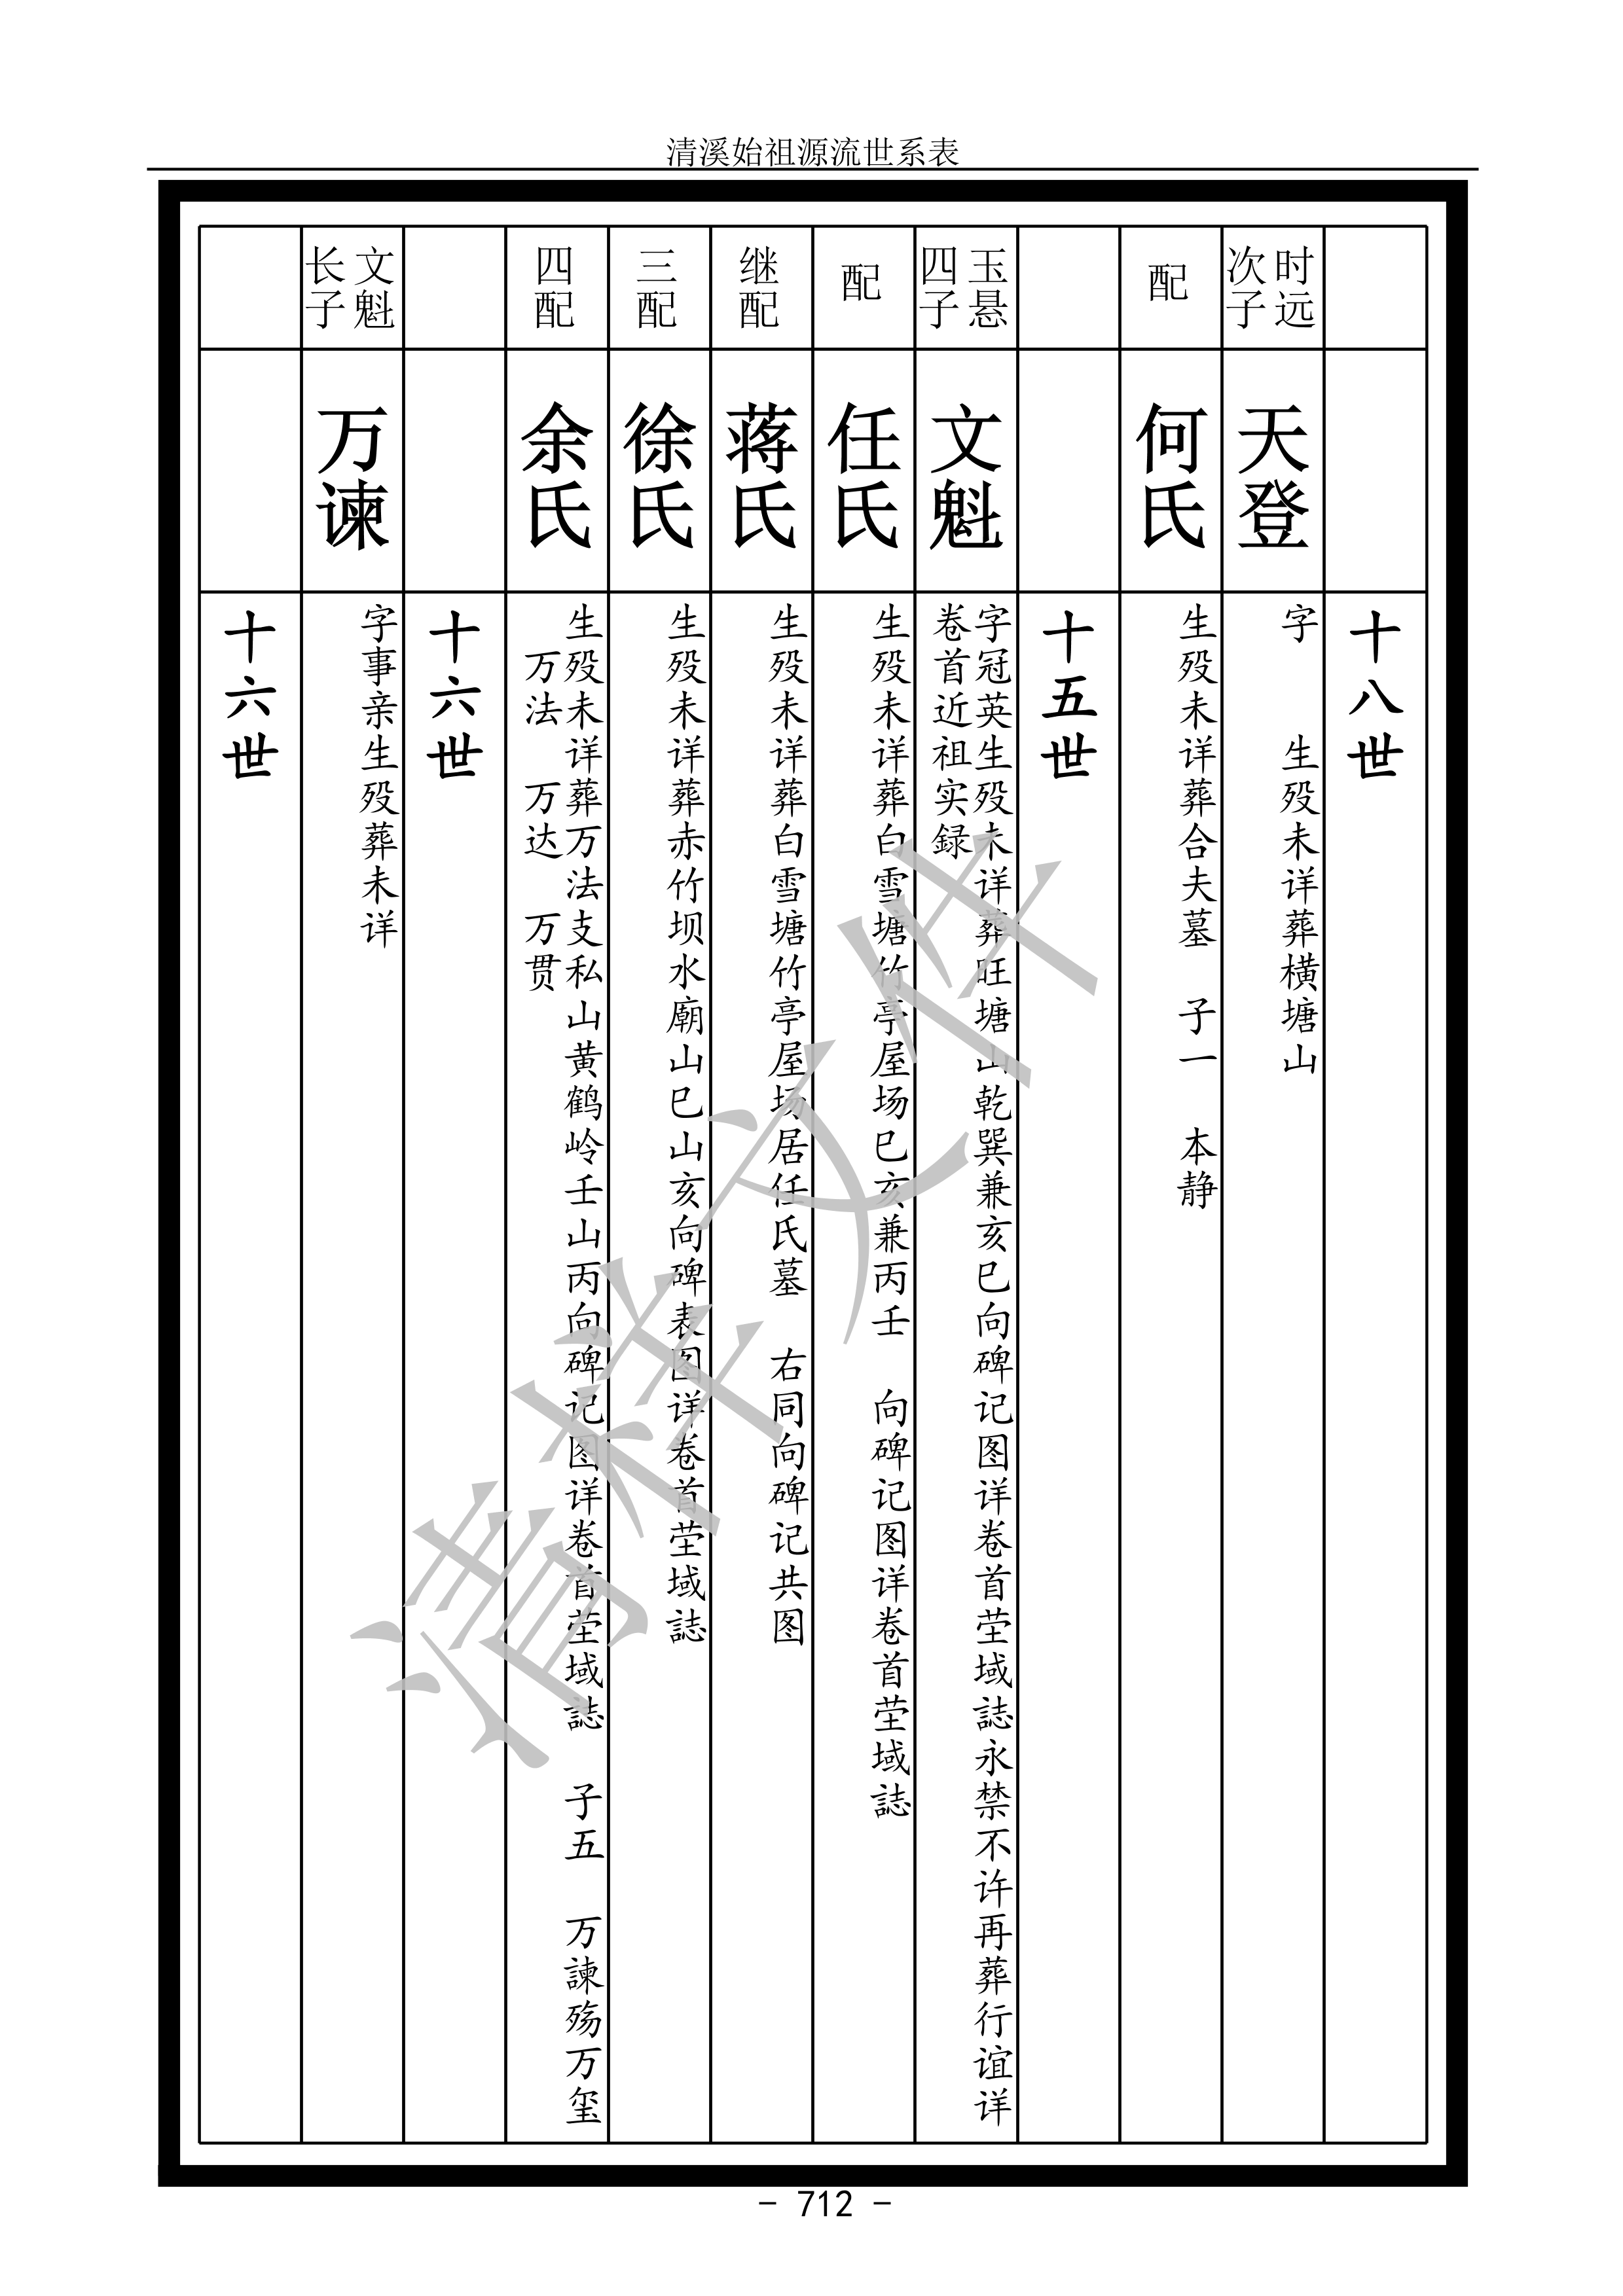 清溪始祖源流世系表
十八世
时远
次子
天登
字　生殁未详葬横塘山
配
何氏
生殁未详葬合夫墓　子一　本静
十五世
玉悬
四子
文魁
字冠英生殁未详葬旺塘山乾巽兼亥巳向碑记图详卷首茔域誌永禁不许再葬行谊详
卷首近祖实録
配
任氏
生殁未详葬白雪塘竹亭屋场巳亥兼丙壬　向碑记图详卷首茔域誌
继配
蒋氏
生殁未详葬白雪塘竹亭屋场居任氏墓　右同向碑记共图
三配
徐氏
生殁未详葬赤竹坝水廟山巳山亥向碑表图详卷首茔域誌
四配
余氏
生殁未详葬万法支私山黄鹤岭壬山丙向碑记图详卷首茔域誌　子五　万諫殇万玺
万法　万达　万贯
十六世
文魁
长子
万谏
字事亲生殁葬未详
十六世
清样文件
- 712 -